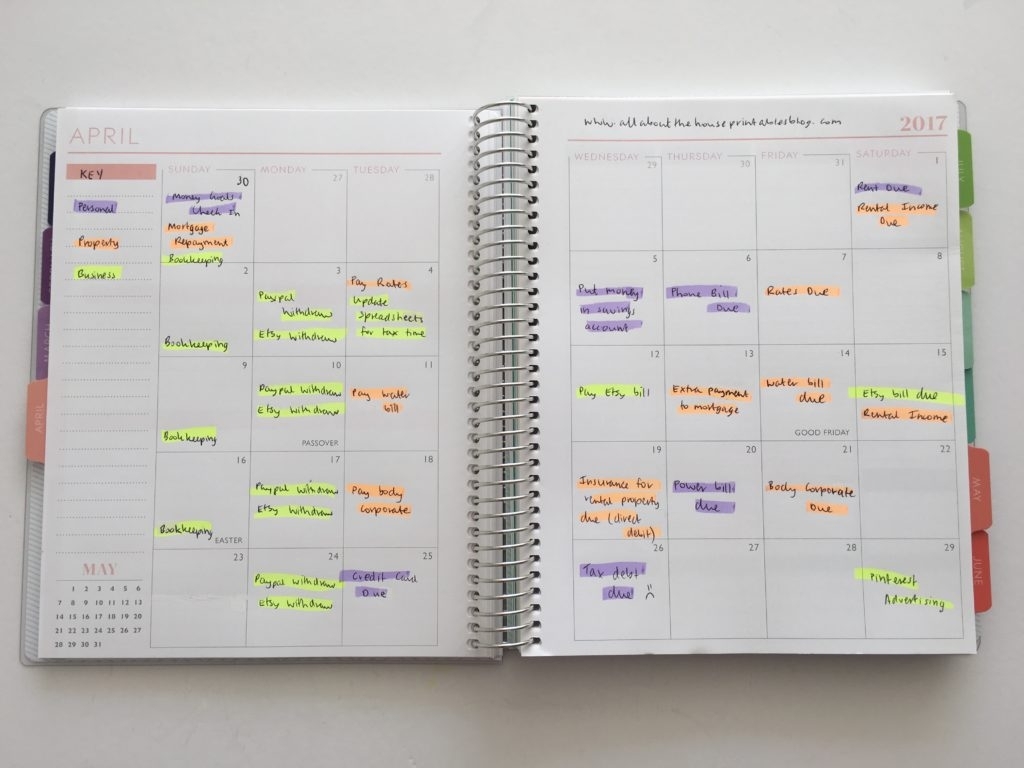 APRIL
www.allaboutthehouseprintablesblog.com
2017
KEY
Personal
Property
Business
SUNDAY
MONDAY
TUESDAY
WEDNESDAY
THURSDAY
FRIDAY
SATURDAY
30
Money Goals
Check In
Mortgage
Repayment
Bookkeeping
27
28
29
30
31
1
Rent Due
Rental Income
Due
2
Bookkeeping
3
Paypal
withdraw
Etsy withdraw
4
Pay Rates
Update
spreadsheets
for tax time
5
Put money
in savings
account
6
Phone Bill
Due
7
Rates Due
8
9
Bookkeeping
10
Paypal withdraw
Etsy withdraw
PASSOVER
11
Pay water
bill
12
Pay Etsy bill
13
Extra payment
to mortgage
14
water bill
due
GOOD FRIDAY
15
Etsy bill due
Rental Income
16
Bookkeeping
EASTER
17
Paypal withdraw
Etsy withdraw
18
Pay body
corporate
19
Insurance for
rental property
due (direct
debit)
20
Power bill
due
21
Body Corporate
Due
22
23
24
Paypal withdraw
Etsy withdraw
25
Credit Card
Due
26
Tax debt
due
27
28
29
Pinterest
Advertising
MAY
1 2 3 4 5 6
7 8 9 10 11 12 13
14 15 16 17 18 19 20
21 22 23 24 25 26 27
28 29 30 31
MARCH
APRIL
JULY
MAY
JUNE